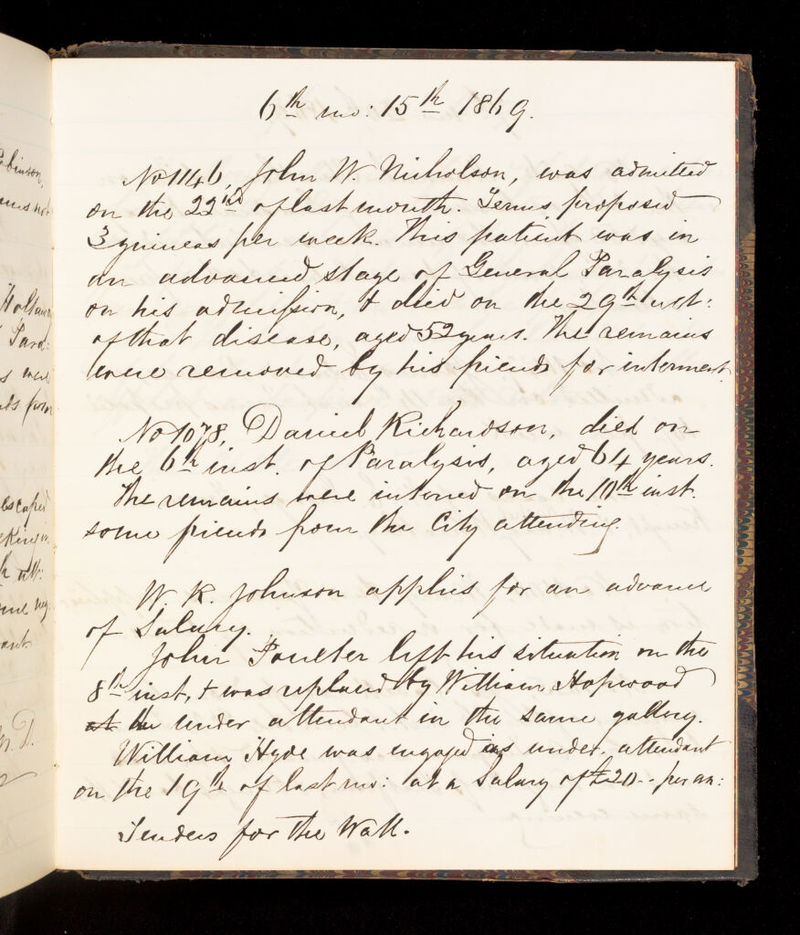 6th mo: 15th 1869.
No 1146, John W. Nicholson, was admitted
on the 22nd of last month. Terms proposed
3 guineas per week. This patient was in
an advanced stage of General Paralysis
on his admission, & died on the 29th ult:
of that disease, aged 52 years. The remains
were removed by his friends for interment.
No 1078, Daniel Richardson, died on
the 6th inst. of Paralysis, aged 64 years.
The remains were interred on the 10th inst.
some friends from the City attending.
W. K. Johnson applies for an advance
of Salary.
John Poulter left his situation on the
8th inst, & was replaced by William Hopwood
at the under attendant in the same gallery.
William Hyde was engaged as under attendant
on the 19th of last mo: at a Salary of £20 - per an:
Tenders for the Wall.
binson,